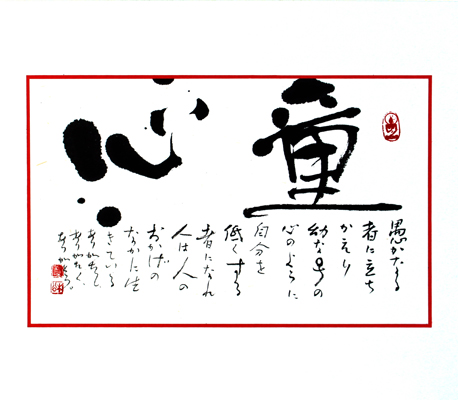 童心
愚かなる
者に立ち
かえり
幼な子の
心のように
自分を
低くする
者になれ
人は人の
おかげの
なかに生
きている